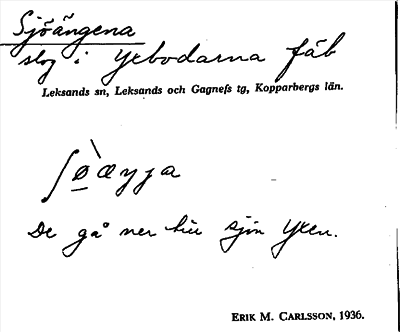 Sjöängena
slog i Yxbodarna fäb
Leksands sn, Leksands och Gagnefs tg, Kopparbergs län.
De gå ner till sjön Yxen.
ERIK M. CARLSSON, 1936.